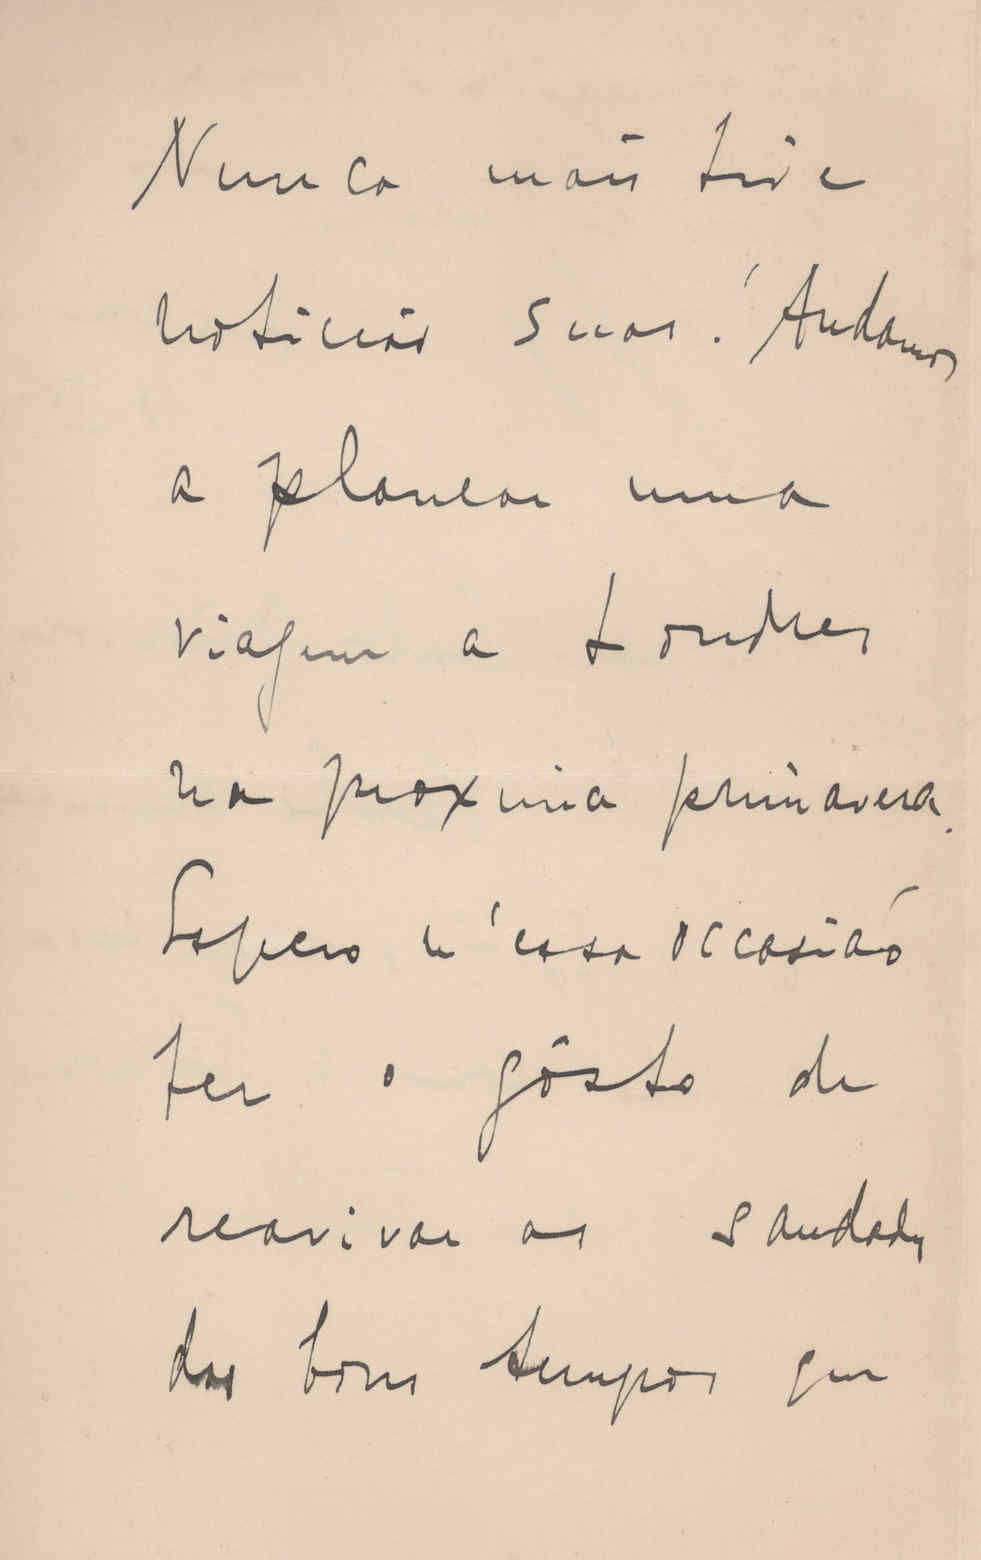 Nunca mais tive
noticias suas! Andamos
a planear uma
viagem a Londres
na proxima primavera.
Espero n'essa occasião
ter o gôsto de
reavivar as saudades
dos bons tempos que